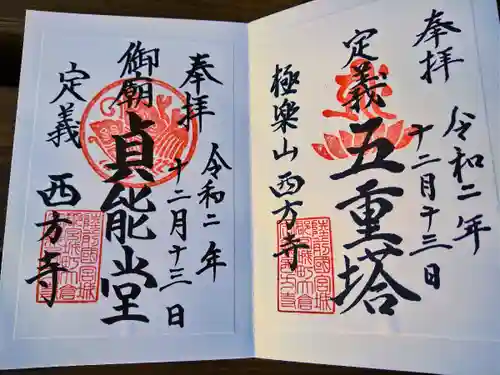 奉拝
令和二年
十二月十三日
定義
五重塔
極楽山
西方寺
奉拝
令和二年
十二月十三日
御廟
貞能堂
定義
西方寺